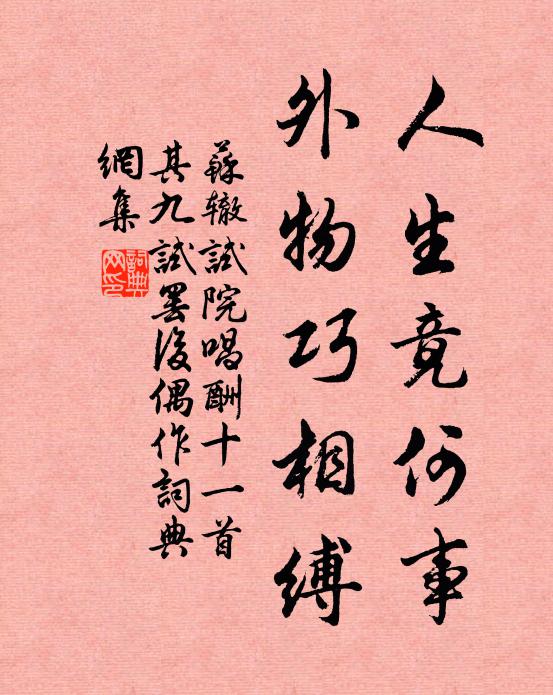 人生竟何事
外物巧相縛
蘇轍試院唱酬十一首
其九試罷後偶作詞典
網集
詞典
网印